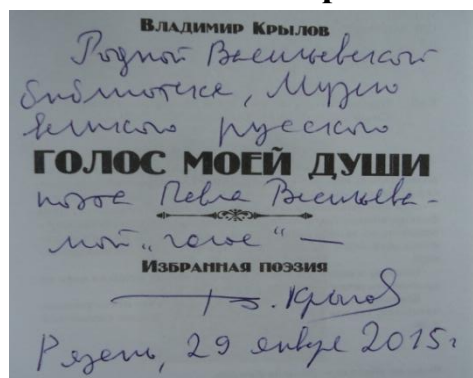 Владимир Крылов
Родной Васильевской
библиотеке, Музею
великого русского
ГОЛОС МОЕЙ ДУШИ
поэта Павла Васильева -
мой „голос“ —
Избранная поэзия
В. Крылов
Рязань, 29 января 2015 г